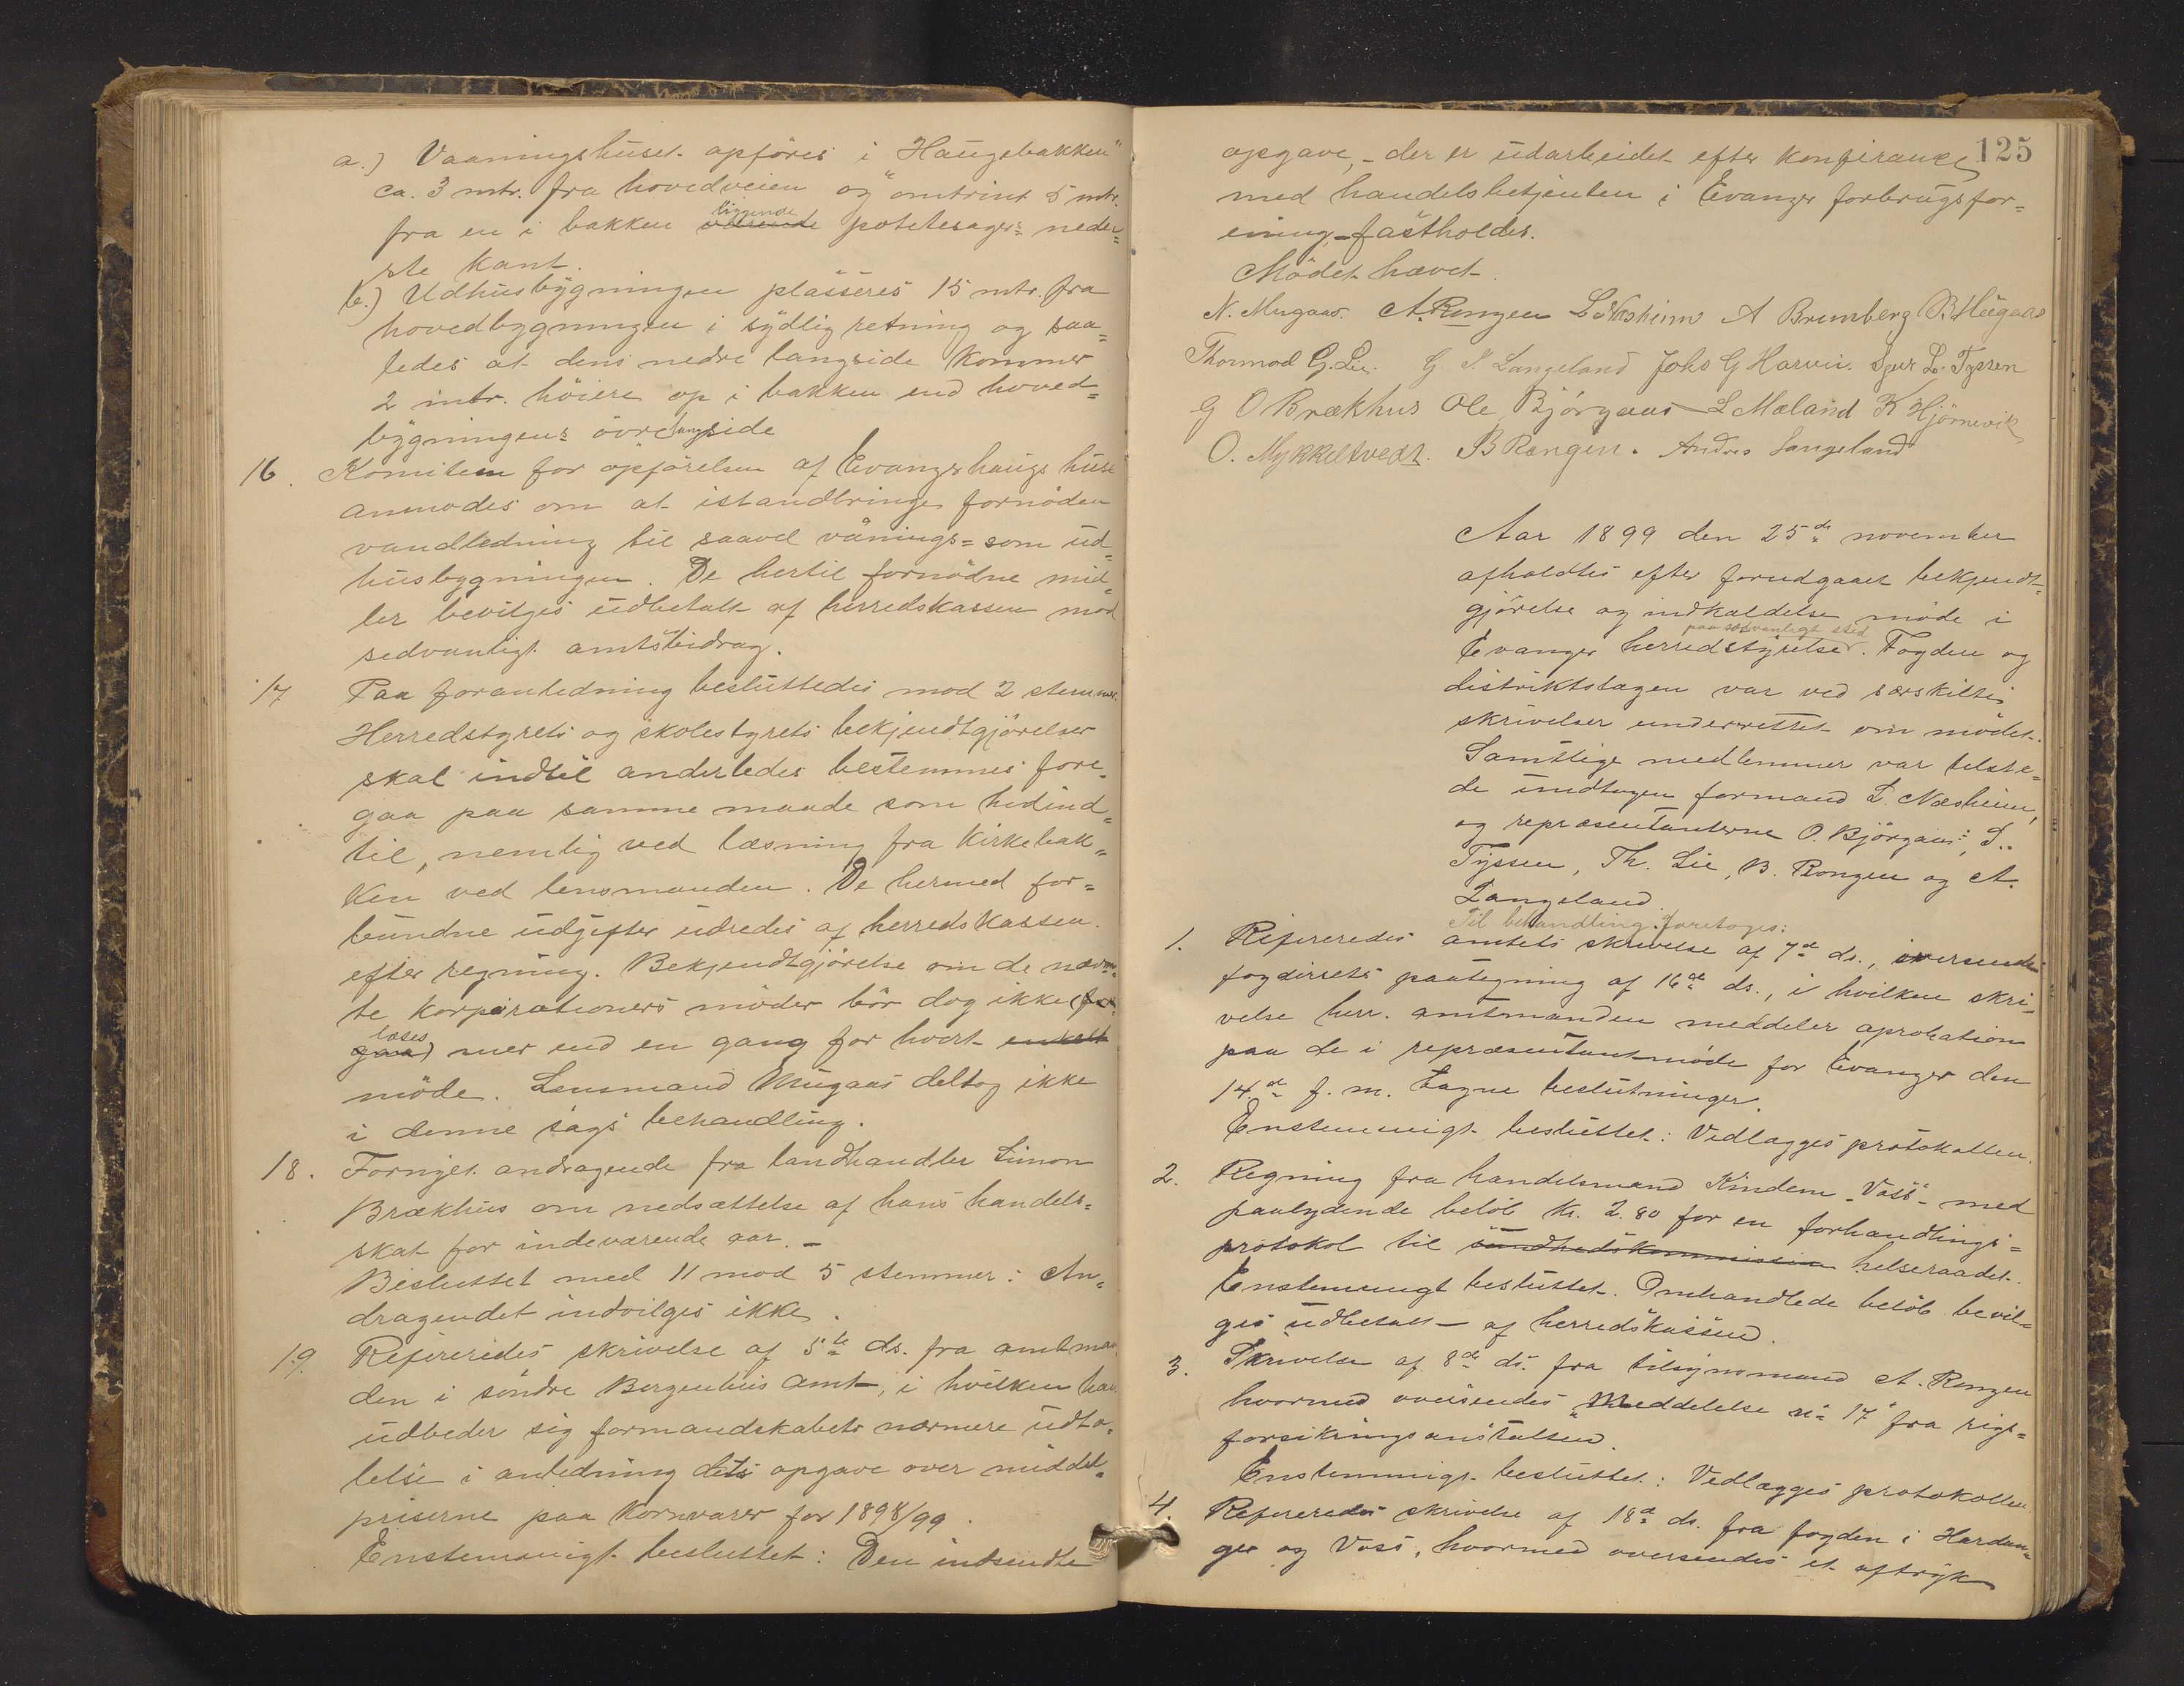 a.) Vaaningshuset opføres i "Haugebakken"
ca. 3 mtr. fra hovedveien og omtrint 5 mtr.
fra en i bakken liggende potetesagers neder=
ste kant.
b.) Udhusbygningen plasseres 15 mtr. fra
hovedbygningen i sydlig retning og saa=
ledes at dens nedre langside kommer
2 mtr. høiere op i bakken end hoved=
bygningens øvre langside
16. Komiteen for opførelsen af Evangerhaugs huse
anmodes om at istandbringe fornøden
vandledning til saavel vånings= som ud=
husbygningen. De hertil fornødne mid=
ler bevilges udbetalt af herredskassen mod
sedvanligt amtsbidrag.
17 Paa foranledning besluttedes mod 2 stemmer.
Herredstyrets og skolestyrets bekjendtgjørelser
skal indtil anderledes bestemmes fore=
gaa paa samme maade som hidind=
til, nemlig ved læsning fra kirkebak=
ken ved lensmanden. De hermed for=
bundne udgifter udredes af herredskassen
efter regning. Bekjendtgjørelse om de nævn=
te korporationers møder bør dog ikke
læses mer end en gang for hvert enkelt
møde. Lensmand Mugaas deltog ikke
i denne sags behandling.
18. Fornyet andragende fra landhandler Simon
Brækhus om nedsættelse af hans handels=
skat for indeværende aar. -
Besluttet med 11 mod 5 stemmer: An=
dragendet indvilges ikke.
19. Refereredes skrivelse af 5te ds. fra amtman
den i søndre Bergenhus amt, i hvilken han
udbeder sig formandskabets nærmere udta=
lelse i anledning dets opgave over middel=
priserne paa kornvarer for 1898/99.
Enstemmigt besluttet: Den indsendte
125
opgave, - der er udarbeidet efter konferance
med handelsbetjenten i Evanger forbrugsfor=
ening, - fastholdes.
Mødet hævet.
N. Mugaas. A. Rongen L Næsheim A Brunborg B. Høgaas
Thormod G. Lie. G S. Langeland Johs G Horvei. Sjur L. Tyssen
G O Brækhus Ole Bjørgaas L Mæland K Hjørnevik
O. Mykkeltvedt. B Rongen. Andres Langeland
Aar 1899 den 25de november
afholdtes efter forudgaaet bekjendt=
gjørelse og indkaldelse møde i
paa sedvanligt sted
Evanger herredstyrelse. Fogden og
distriktslægen var ved særskilte
skrivelser underrettet om mødet.
Samtlige medlemmer var tilste=
de undtagen formand L. Næsheim,
og repræsentanterne O. Bjørgaas, S.
Tyssen, Th. Lie, B. Rongen og A.
Langeland
Til behandling foretoges:
1. Refereredes amtets skrivelse af 7de ds., oversendt
fogderiets paategning af 16de ds., i hvilken skri=
velse herr. amtmanden meddeler aprobation
paa de i repræsentantmøde for Evanger den
14de f. m. tagne beslutninger.
Enstemmigt besluttet: Vedlægges protokollen.
2. Regning fra handelsmand Kindem - Voss - med
paalydende beløb kr. 2.80 for en forhandlings=
protokol til sundhedskommission helseraadet.
Enstemmigt besluttet. Omhandlede beløb bevil=
ges udbetalt af herredskassen.
3. Skrivelse af 8de ds. fra tilsynsmand A. Rongen
hvormed oversendes "Meddelelse no 17" fra rigs=
forsikringsanstalten.
Enstemmigt besluttet: Vedlægges protokollen
4. Refereredes skrivelse af 18de ds. fra fogden i Hardan=
ger og Voss, hvormed oversendes et aftryk